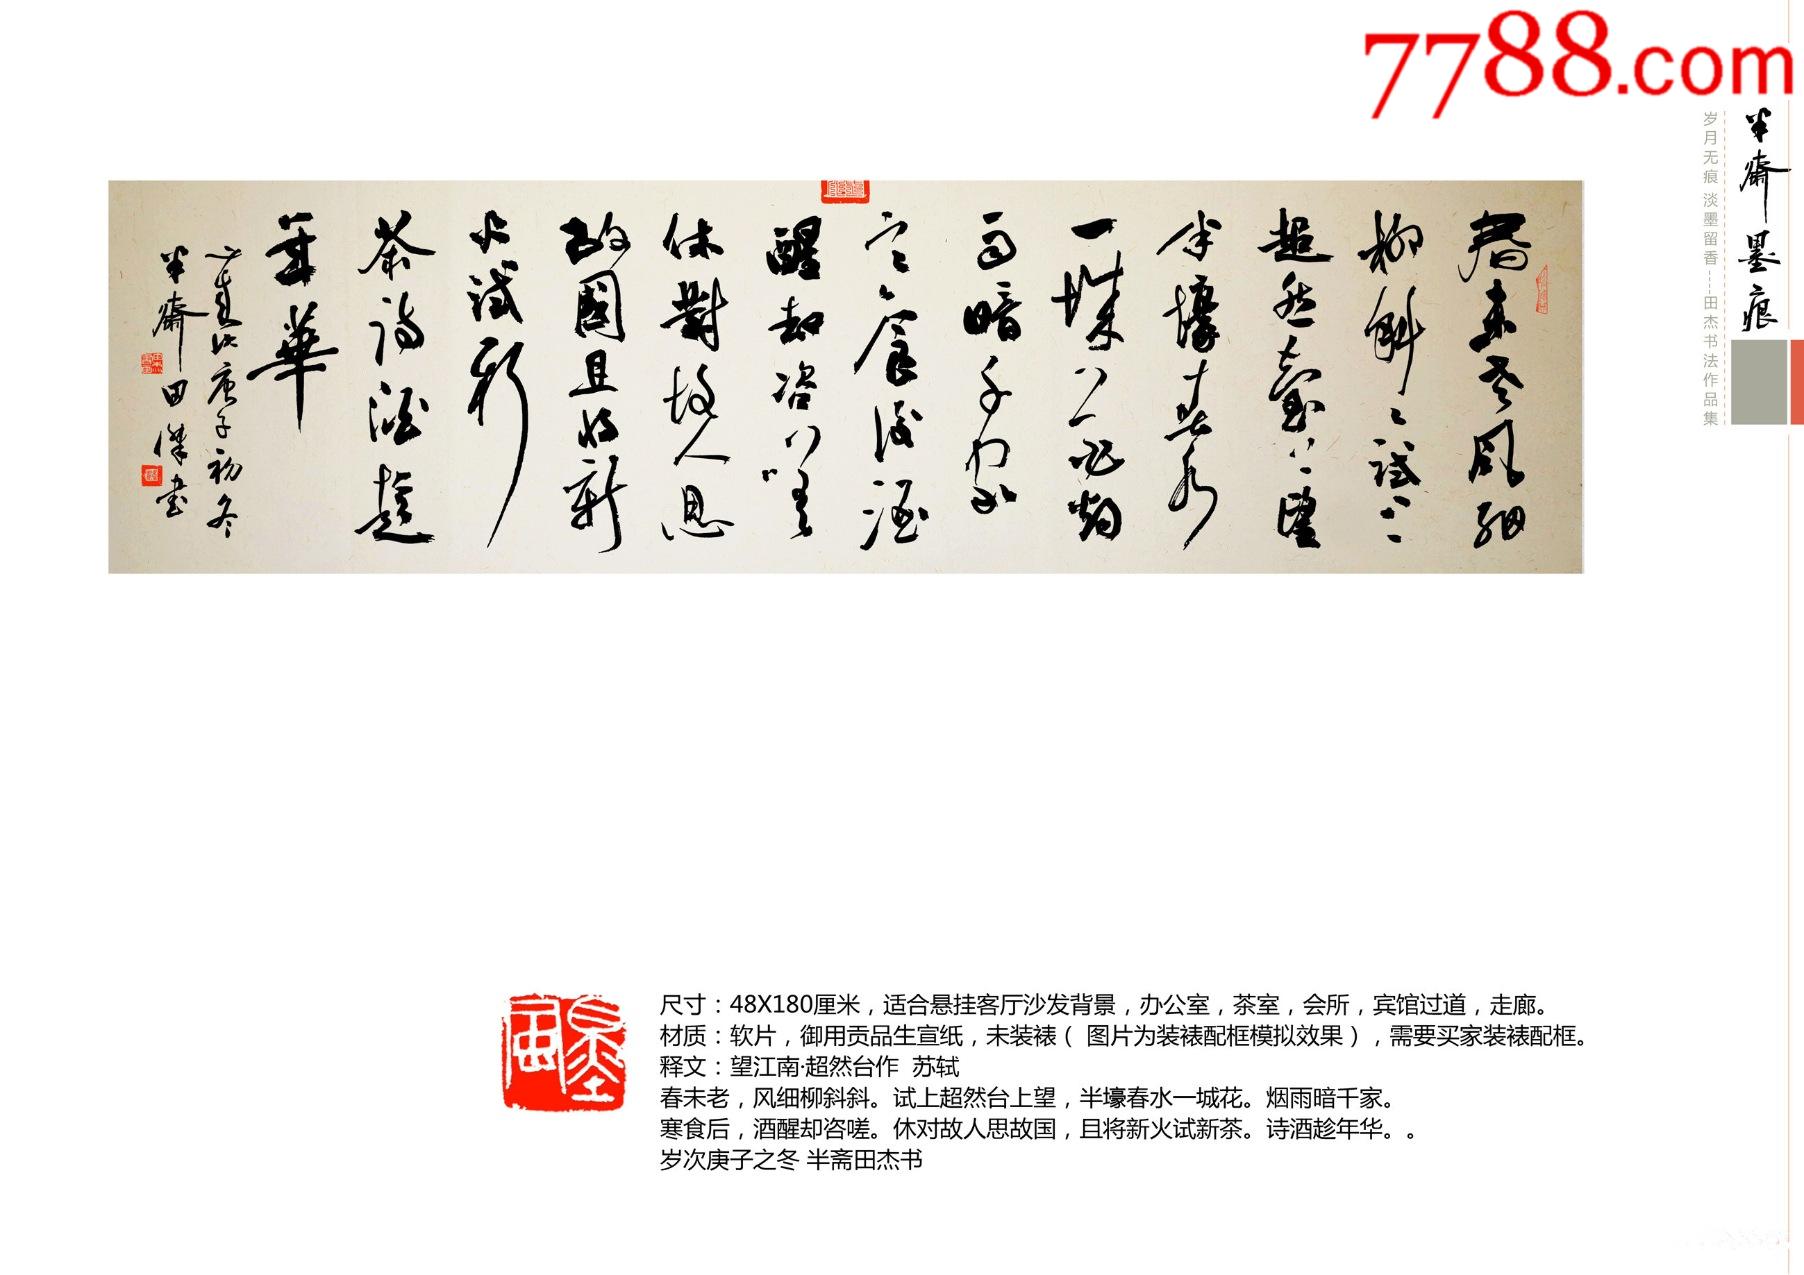 7788.com
半齋墨痕
岁月无痕 淡墨留香----田杰书法作品集
春未老風細
柳斜〻試上
超然臺上望
半壕春水
一城花烟
雨暗千家
寒食後酒
醒却咨嗟
休對故人思
故國且將新
火試新
茶詩酒趁
年華
歲次庚子初冬
半齋田傑書
尺寸：48X180厘米，适合悬挂客厅沙发背景，办公室，茶室，会所，宾馆过道，走廊。
材质：软片，御用贡品生宣纸，未装裱（ 图片为装裱配框模拟效果），需要买家装裱配框。
释文：望江南·超然台作 苏轼
春未老，风细柳斜斜。试上超然台上望，半壕春水一城花。烟雨暗千家。
寒食后，酒醒却咨嗟。休对故人思故国，且将新火试新茶。诗酒趁年华。。
岁次庚子之冬 半斋田杰书